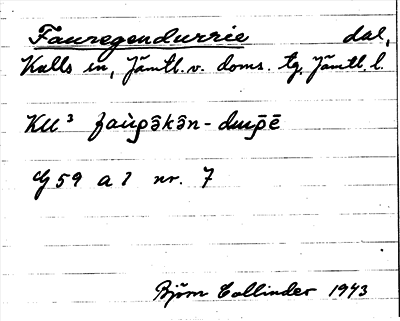 Fauregendurrie dal,
Kalls sn, Jämtl. v. doms. tg. Jämtl. l.
KU³ faùꞃə̄kə̄n-duꞃ̄ē
G 59 a 7 nr. 7
Björn Collinder 1943